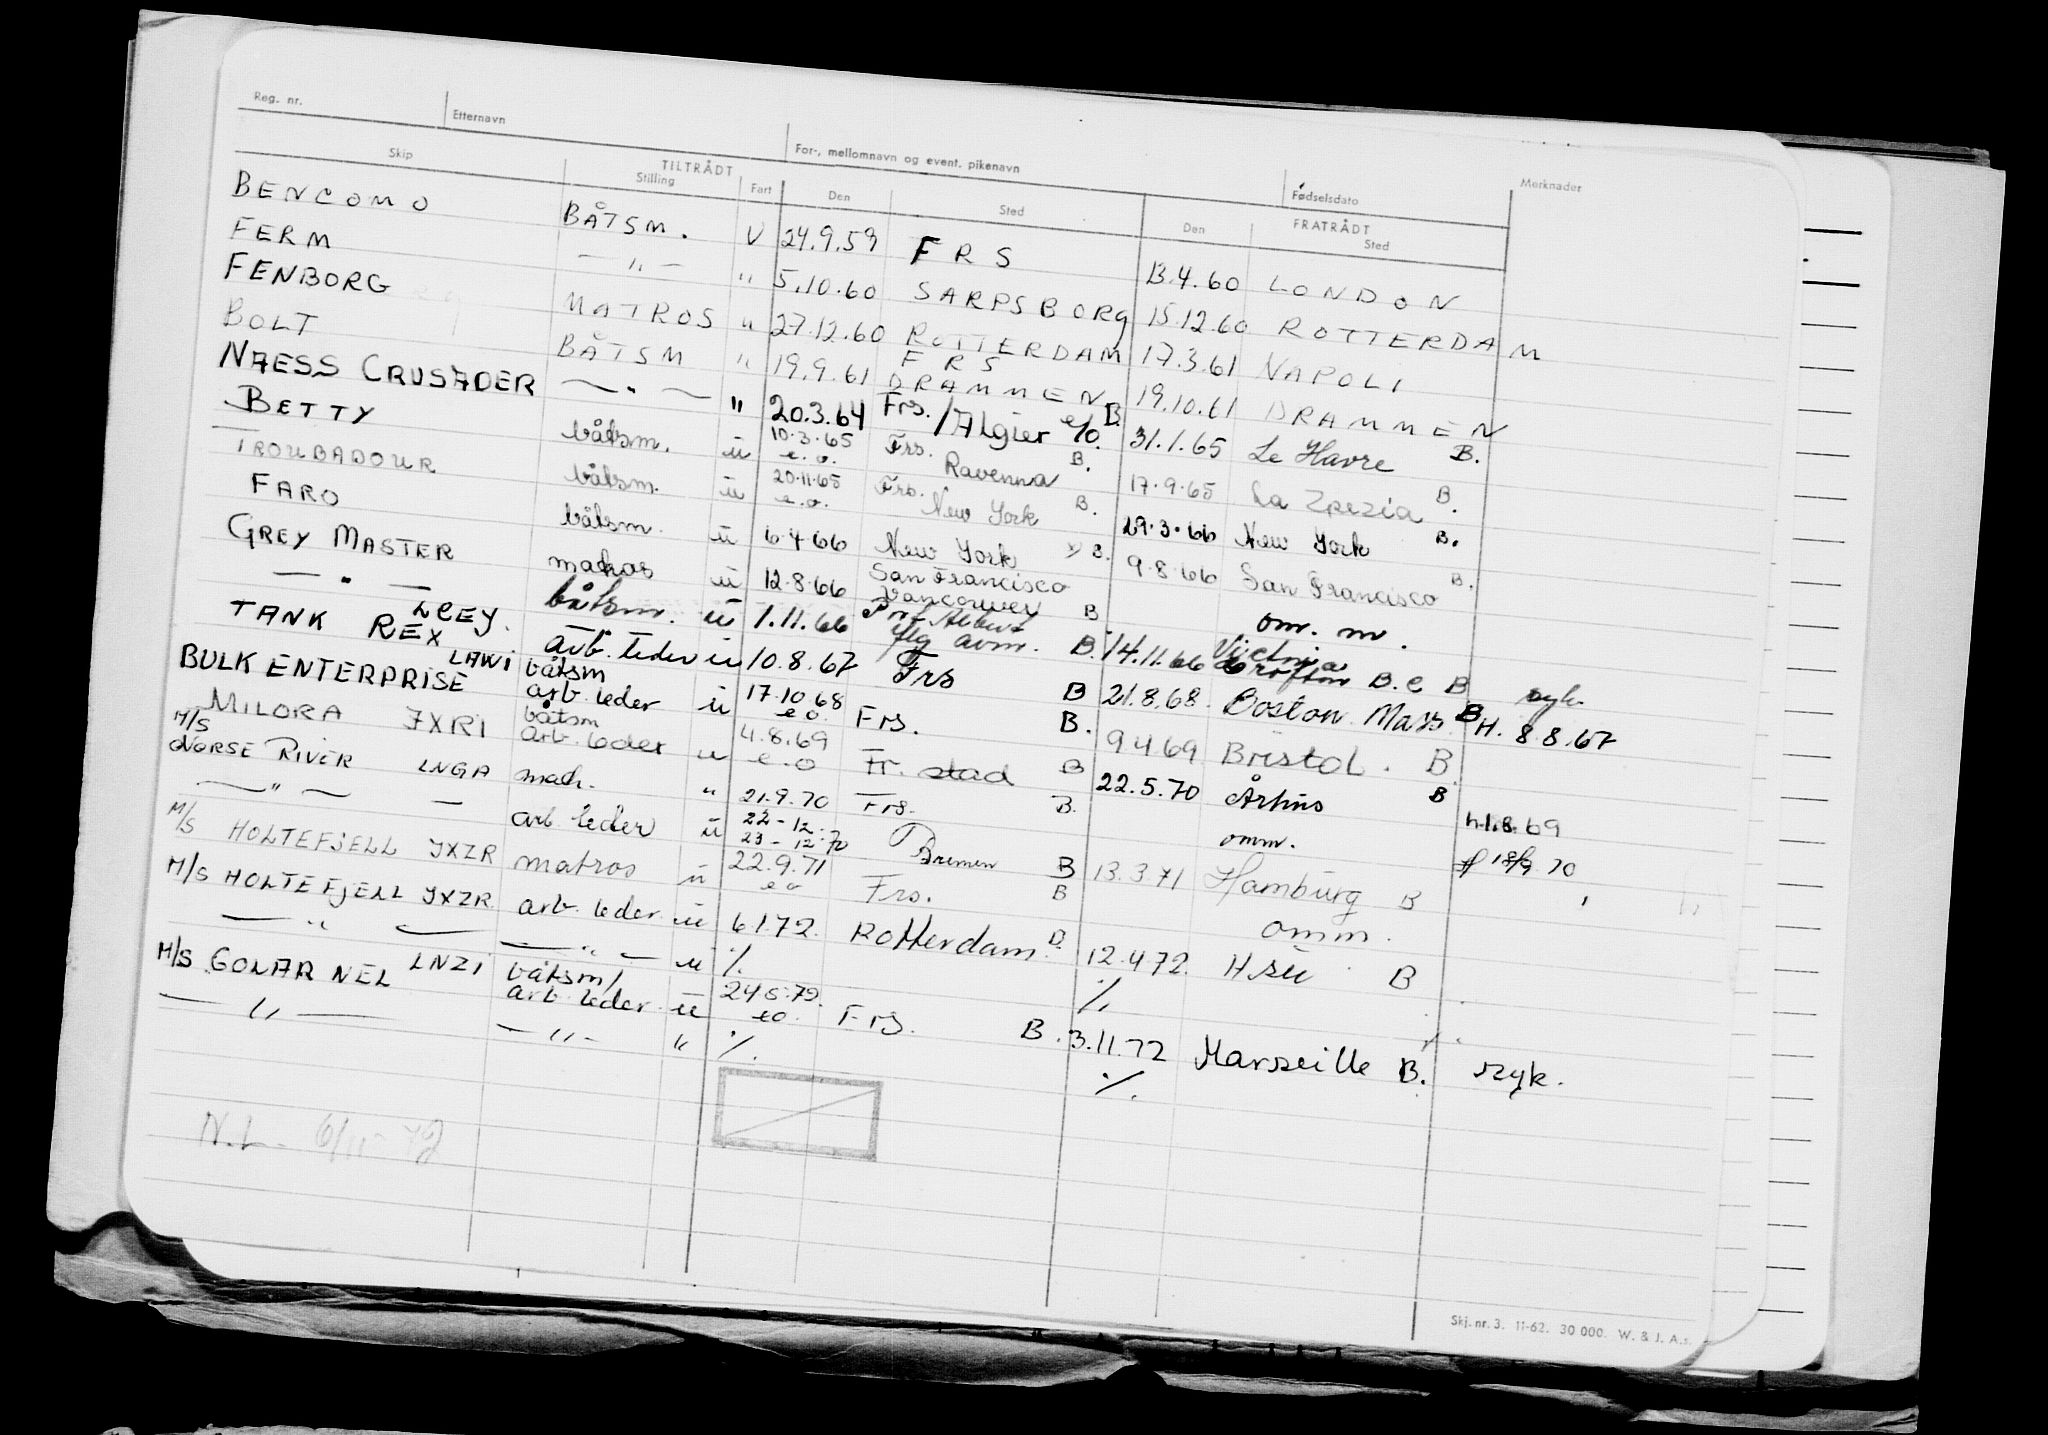 Reg. nr. Etternavn For-, mellomnavn og event. pikenavn Fødselsdato Merknader
Skip TILTRÅDT FRATRÅDT
Stilling Fart Den Sted Den Sted
BENCOMO BÅTSM. V 24.9.59 FRS 13.4.60 LONDON
FERM — " — " 5.10.60 SARPSBORG 15.12.60 ROTTERDAM
FENBORG MATROS " 27.12.60 ROTTERDAM 17.3.61 NAPOLI
BOLT BÅTSM " 19.9.61 FRS DRAMMEN 19.10.61 DRAMMEN
NAESS CRUSADER — " — " 20.3.64 Frs. / Algier e/o. B. 31.1.65 Le Havre B.
BETTY båtsm. u 10.3.65 e.o. Frs. Ravenna B. 17.9.65 La Zpezia B.
TROUBADOUR båtsm. u 20.11.65 e.o. Frs. New York B. 29.3.66 New York B.
FARO båtsm. u 6.4.66 New York B. 9.8.66 San Francisco B.
GREY MASTER matros u 12.8.66 San Francisco Vancouver B om. m.
— " — LCEY. båtsm. u 1.11.66 B. 14.11.66 Victoria B.C B syk.
TANK REX LAWI arb. leder u 10.8.67 Frs B 21.8.68. Boston Mass B H. 8.8.67
BULK ENTERPRISE båtsm arb. leder u 17.10.68 e.o. Frs. B. 9.4.69 Bristol. B.
MILORA JXRI båtsm arb. leder u 4.8.69 e.o Fr. stad B 22.5.70 Århus B h.1.8.69
M/S NORSE RIVER LNGA matr. " 21.9.70 Frs. B. omm. 18/9 70
— " — — arb leder u 22-12: 23-12:70 Bremen B 13.3.71 Hamburg B
M/S HOLTEFJELL JXZR matros u 22.9.71 eo Frs. B omm.
M/S HOLTEFJELL JXZR. arb. leder. u 6.1.72. Rotterdam B. 12.4.72. B
— " — — " — u %. %
M/S GOLAR NEL LNZI båtsm/ arb. leder. u 24.5.72. eo. Frs. B. 3.11.72 Marseille B. szyk.
— " — — " — " %. %.
N.L. 6/11-72
Skj. nr. 3. 11-62. 30 000. W. & J. A.s.